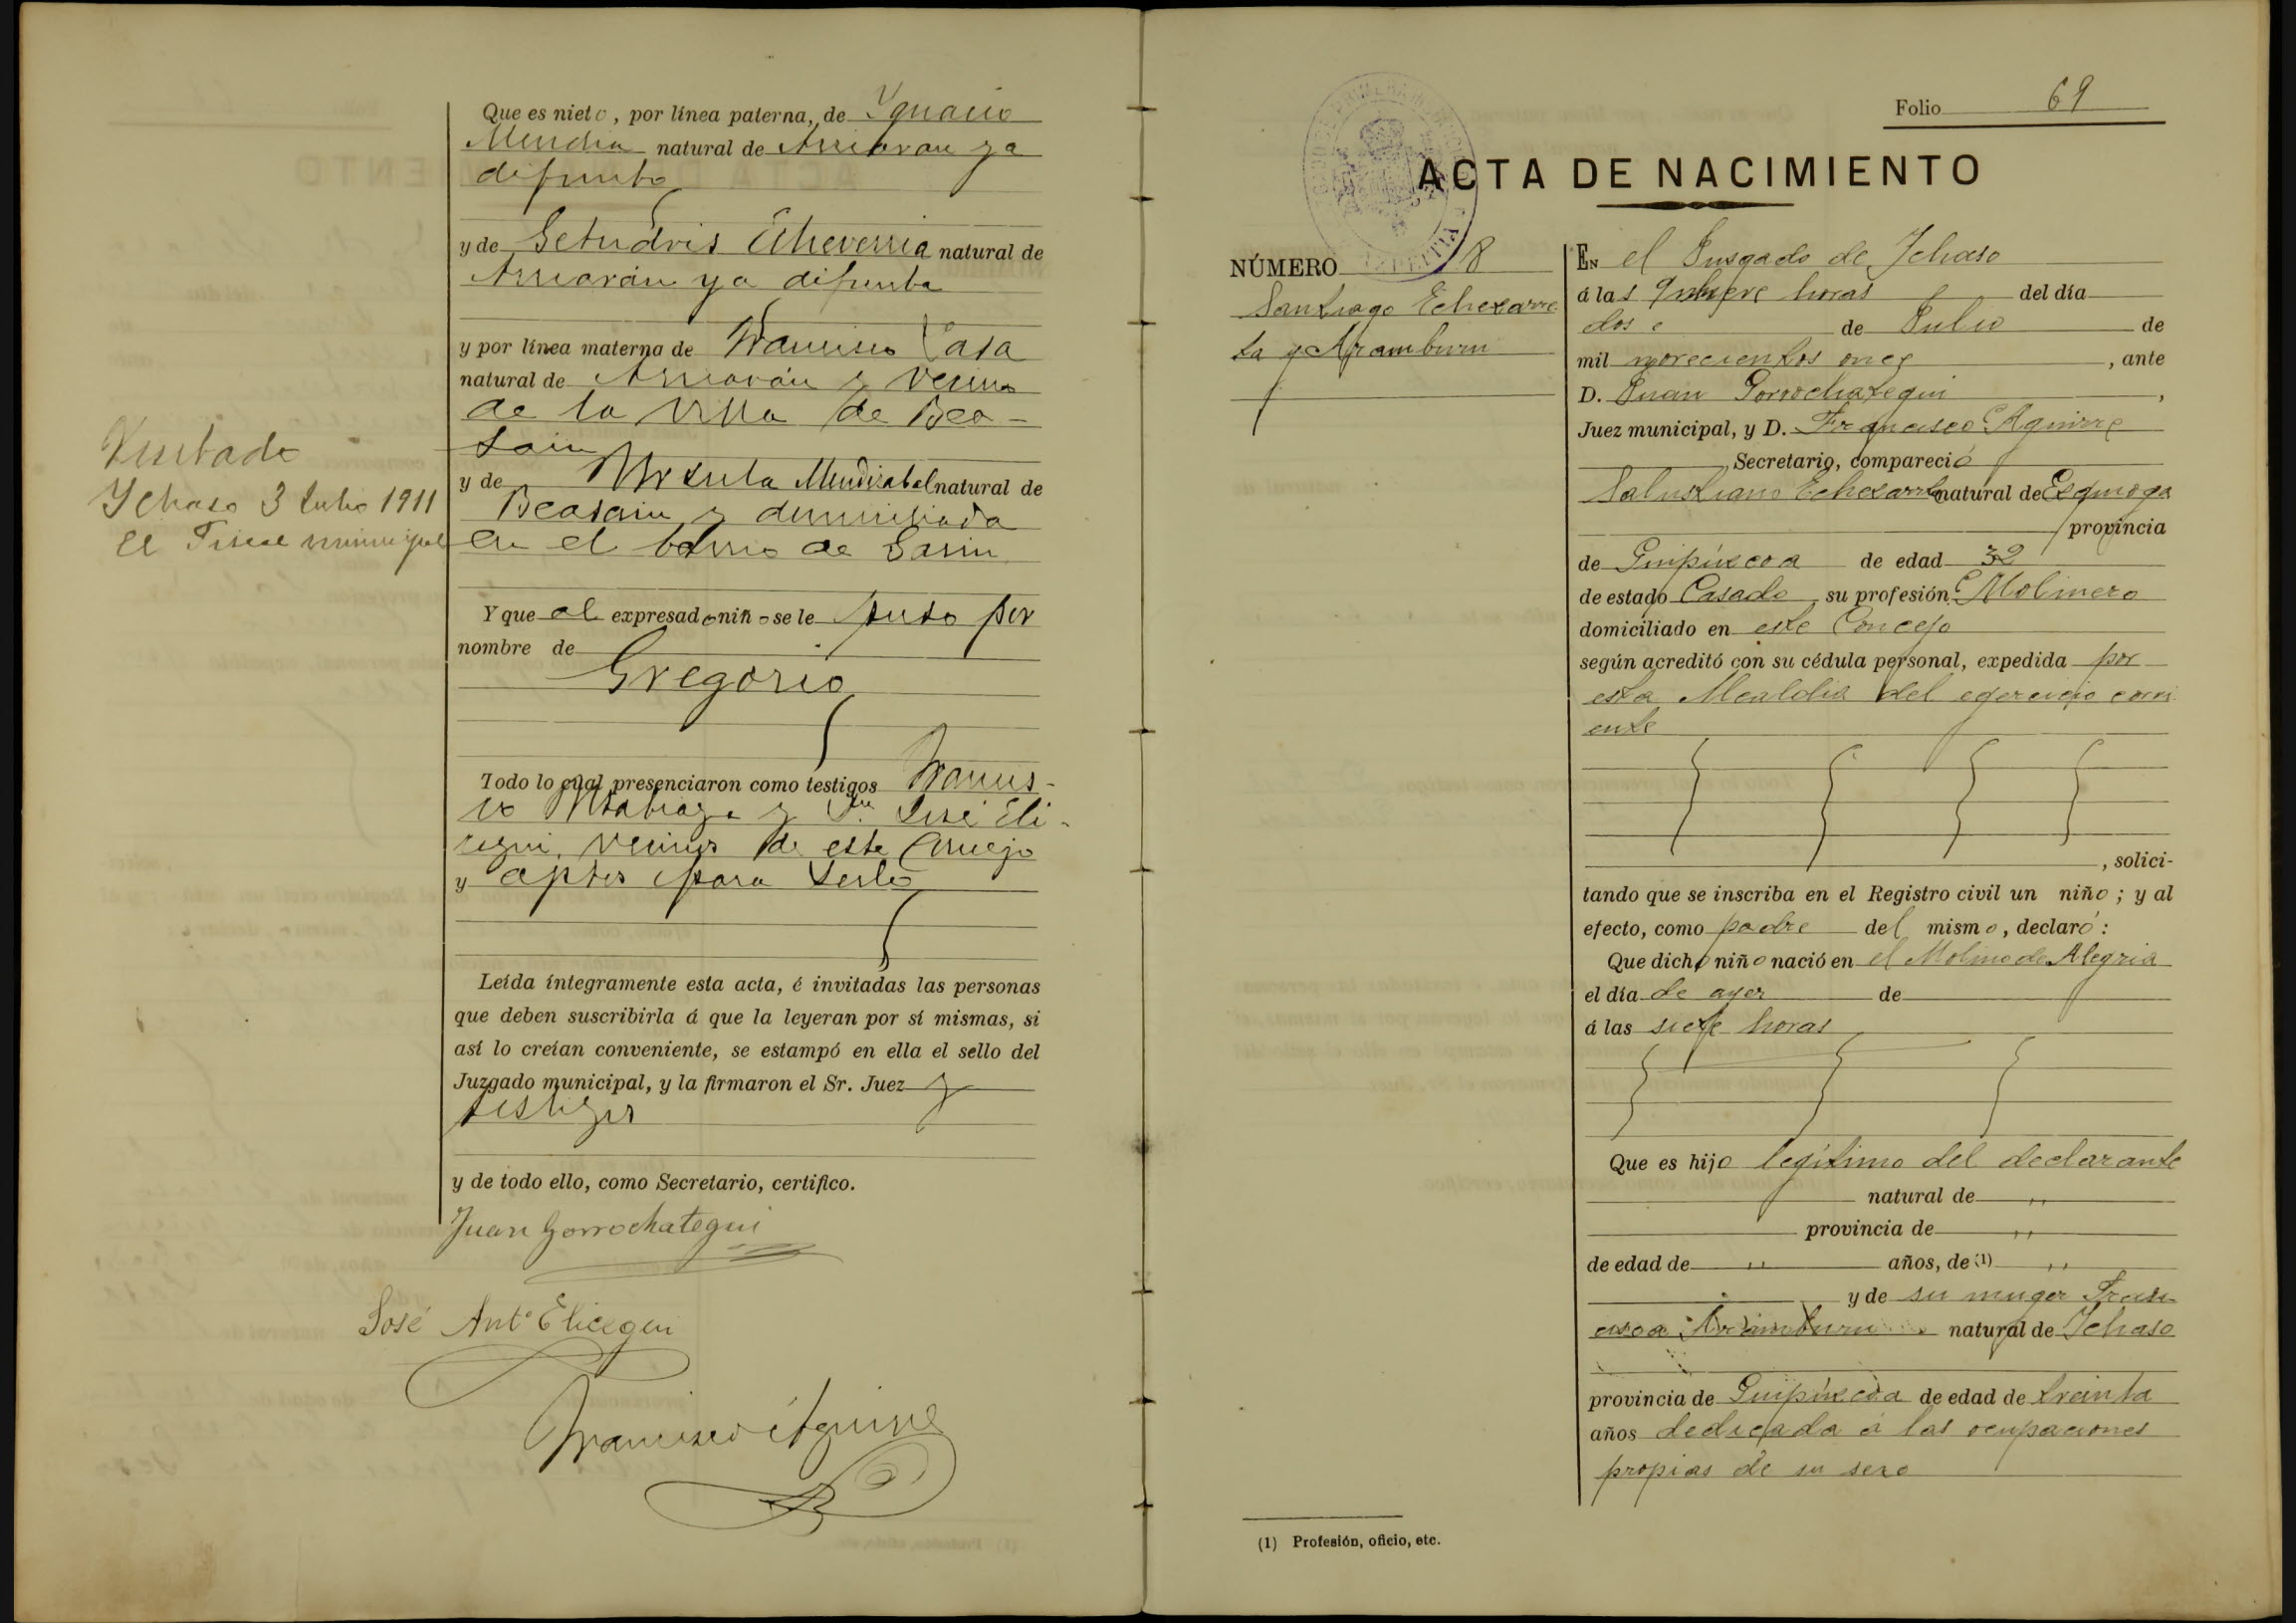 Que es nieto, por línea paterna, de Ygnacio
Mendia natural de Arriaran ya
difunto
y de Getrudris Echeverria natural de
Arriarán ya difunta
y por línea materna de Francisco Lasa
natural de Arriarán y vecino
de la villa de Bea-
sain
y de Ursula Mendizabal natural de
Beasain y domiciliada
en el barrio de Garin
Y que al expresado niño se le puso por
nombre de
Gregorio
Todo lo cual presenciaron como testigos Francis-
co y Dn José Eli-
cegui, vecinos de este Concejo
y aptos para serlo
Leída íntegramente esta acta, é invitadas las personas
que deben suscribirla á que la leyeran por sí mismas, si
así lo creían conveniente, se estampó en ella el sello del
Juzgado municipal, y la firmaron el Sr. Juez y
testigos
y de todo ello, como Secretario, certifico.
Juan Gorrochategui
José Anto Elicegui
Francisco Aguirre
Visitado
Ychaso 3 Julio 1911
El Fiscal municipal
Folio 69
ACTA DE NACIMIENTO
NÚMERO 18
Santiago Echezarre
ta y Aramburu
EN el Jusgado de Ychaso
á las nueve horas del día
dos de Julio de
mil novecientos once, ante
D. Juan Gorrochategui,
Juez municipal, y D. Francisco Aguirre
Secretario, compareció
Salustiano Echezarreta natural de Ezquioga
provincia
de Guipúzcoa de edad 32
de estado Casado su profesión Molinero
domiciliado en este Concejo
según acreditó con su cédula personal, expedida por
esta Alcaldia del egercicio corri
ente
, solici-
tando que se inscriba en el Registro civil un niño; y al
efecto, como padre del mismo, declaró:
Que dicho niño nació en el Molino de Alegria
el día de ayer de
á las siete horas
Que es hijo legítimo del declarante
natural de ,,
provincia de ,,
de edad de ,, años, de (1) ,,
y de su muger Fran
cisca Aramburu natural de Ychaso
provincia de Guipúzcoa de edad de treinta
años dedicada á las ocupaciones
propias de su sexo
(1) Profesión, oficio, etc.